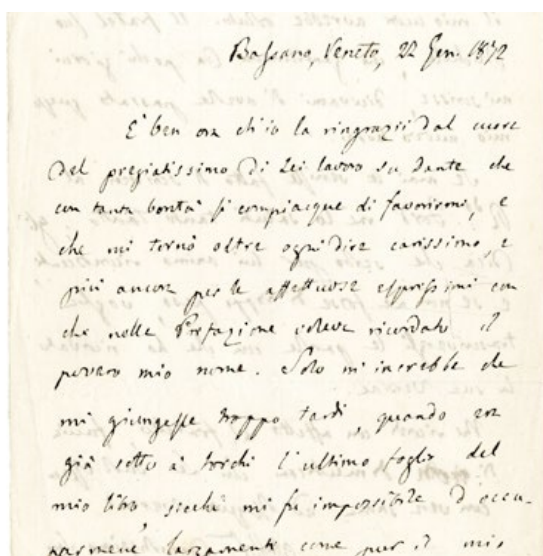 Bassano, Veneto, 22 Gen. 1872
E' ben ora ch'io la ringrazii dal cuore
del pregiatissimo di Lei lavoro su Dante che
con tanta bontà si compiacque di favorirmi, e
che mi tornò oltre ogni dire carissimo, e
più ancora per le affettuose espressioni con
che nella Prefazione volle ricordato il
povero mio nome. Solo m'increbbe che
mi giungesse troppo tardi, quando era
già sotto a' torchi l'ultimo foglio del
mio libro, sicchè mi fu impossibile d'occu-
parmene largamente come pur il mio